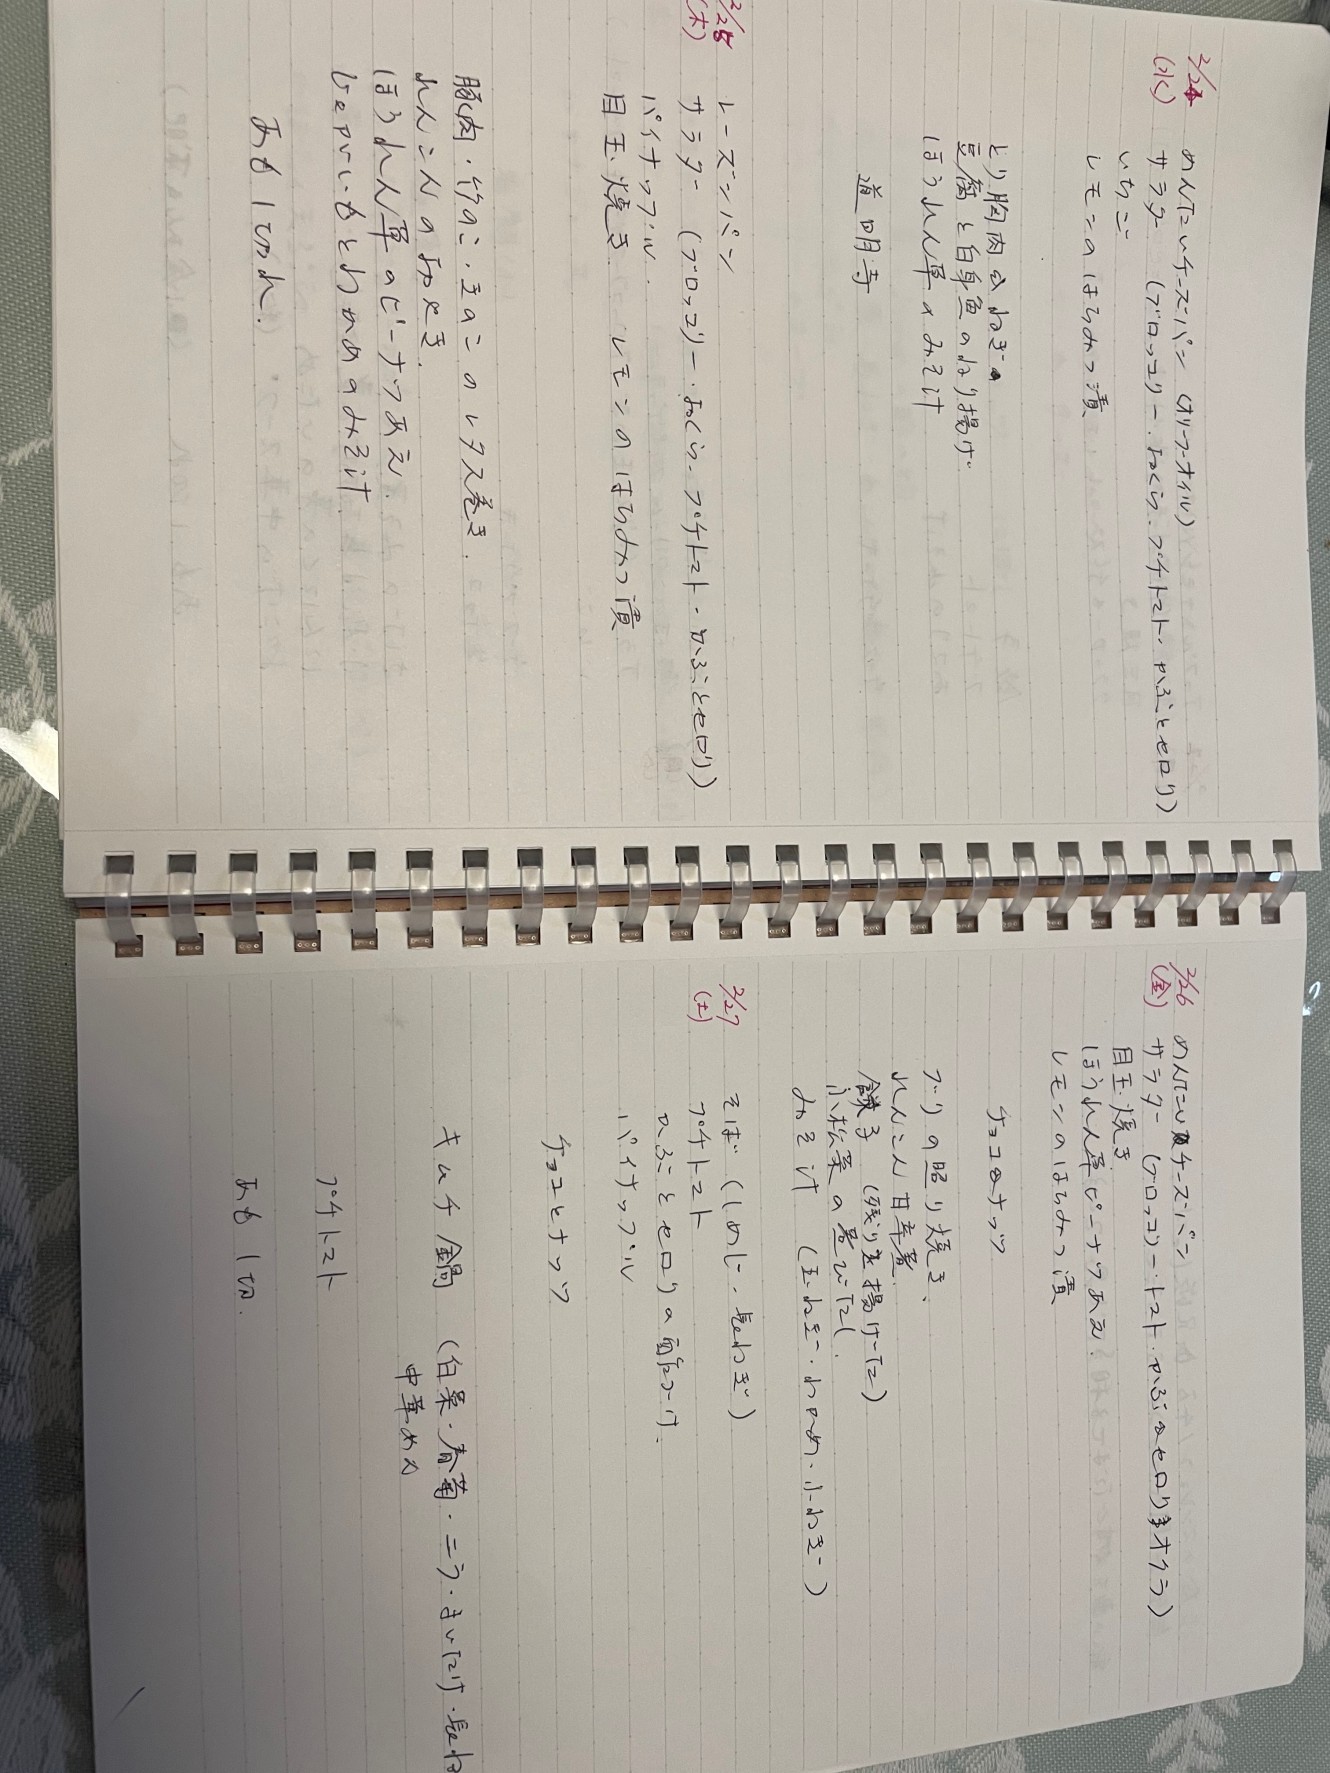 2/24
(水)
めんたいチーズパン (オリーブオイル)
サラダー (ブロッコリー・おくら・プチトマト・かぶとセロリ)
いちご
レモンのはちみつ漬
とり胸肉のねぎの
豆腐と白身魚のねり揚げ
ほうれん草のみそ汁
道明寺
2/25
(木)
レーズンパン
サラダー (ブロッコリー・おくら・プチトマト・かぶとセロリ)
パイナップル
目玉焼き レモンのはちみつ漬
豚肉・竹のこ・玉のこのレタス巻き
れんこんの
ほうれん草のピーナツあえ
じゃがいもとわかめのみそ汁
あも1切れ
2/26
(金)
めんたいチーズパン
サラダー (ブロッコリー・トマト・かぶのセロリ オクラ)
目玉焼き
ほうれん草ピーナツあえ
レモンのはちみつ漬
チョコ ナッツ
ブリの照り焼き
れんこん甘辛煮
餃子 (残りを揚げた)
小松菜の煮びたし
みそ汁 (玉ねぎ・わかめ・小ねぎ)
2/27
(土)
そば (しめじ・長ねぎ)
プチトマト
かぶとセロリの酢づけ
パイナップル
チョコとナッツ
キムチ鍋 (白菜・春菊・ニラ・まいたけ・長ね
中華めん
プチトマト
あも1切